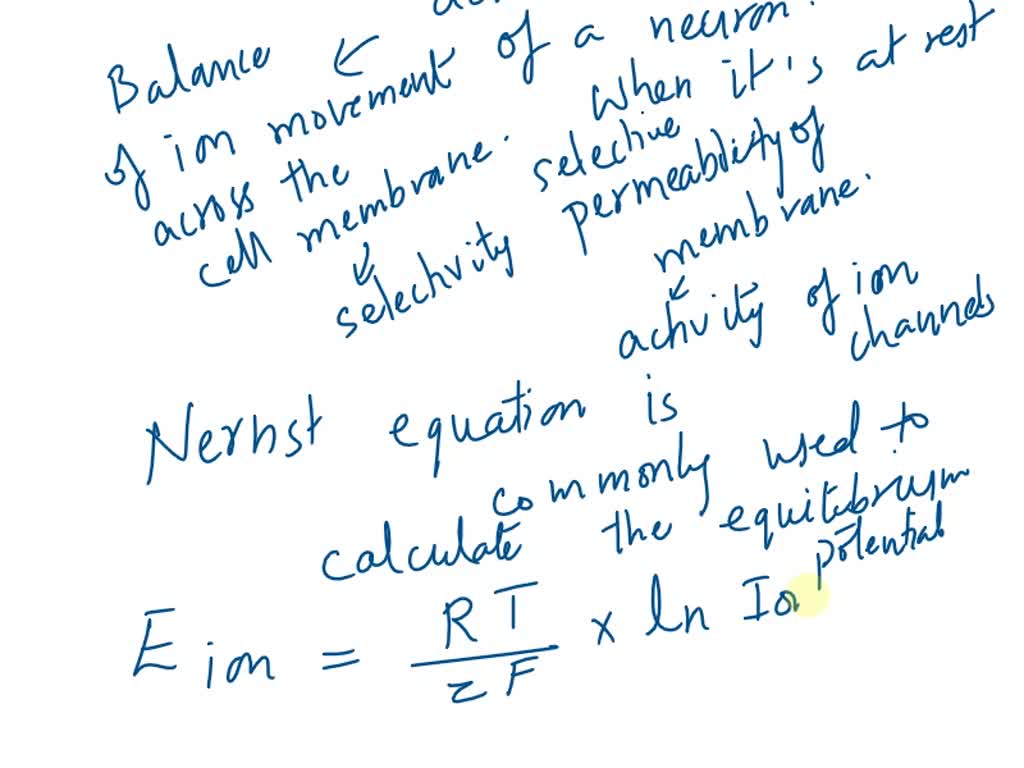 Balance ← 
of ion movement of a neuron.
across the
cell membrane. When it's at rest
selective
permeability of
membrane.
↓
selectivity
↓
activity of ion
channels
Nernst equation is
commonly used to
calculate the equilibrium
potential
E ion = RT / zF × ln Io